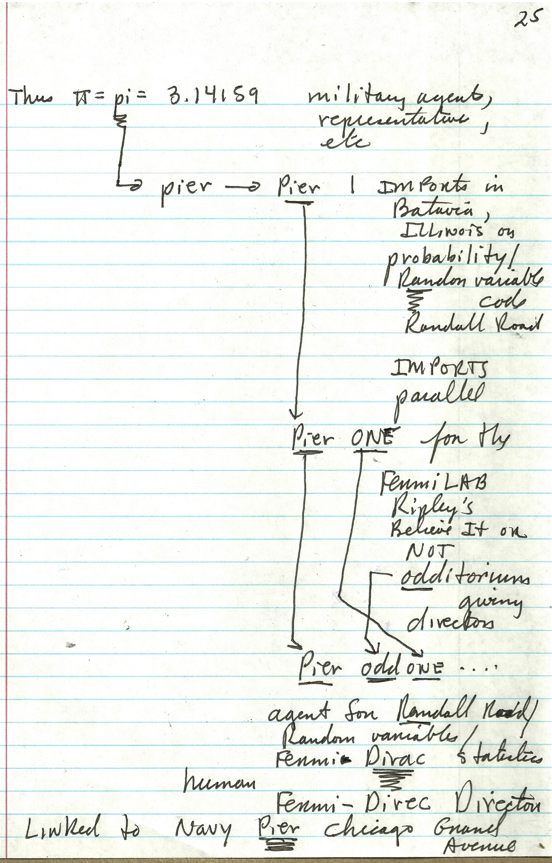 25
Thus π = pi = 3.14159 military agent,
representative,
etc
pier → Pier 1 IMPorts in
Batavia,
ILLinois on
probability/
Random variable
code
Randall Road
IMPORTS
parallel
Pier ONE for the
FermiLAB
Ripley's
Believe It or
NOT
odditoriums
giving
directors
Pier odd ONE ....
agent for Randall Road/
Random variables/
Fermi-Dirac Statistics
human
Fermi-Direc Director
Linked to Navy Pier Chicago Grand
Avenue